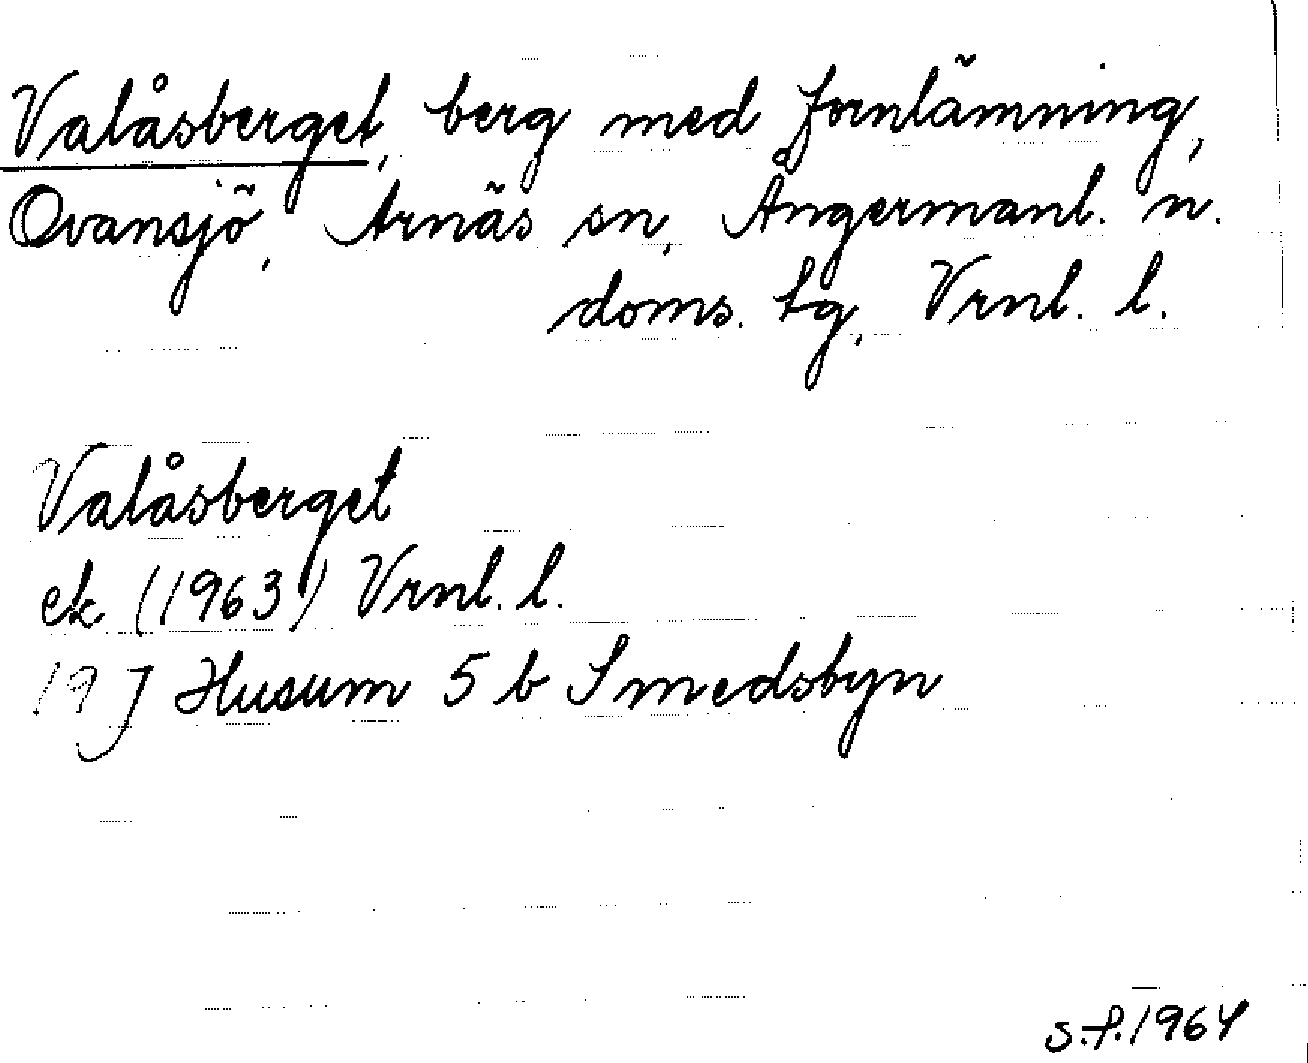 Valåsberget, berg med fornlämning,
Ovansjö, Arnäs sn, Ångermanl. n.
doms. tg, Vrnl. l.
Valåsberget
ek (1963) Vrnl. l.
19 J Husum 5 b Smedsbyn
S.f. 1964